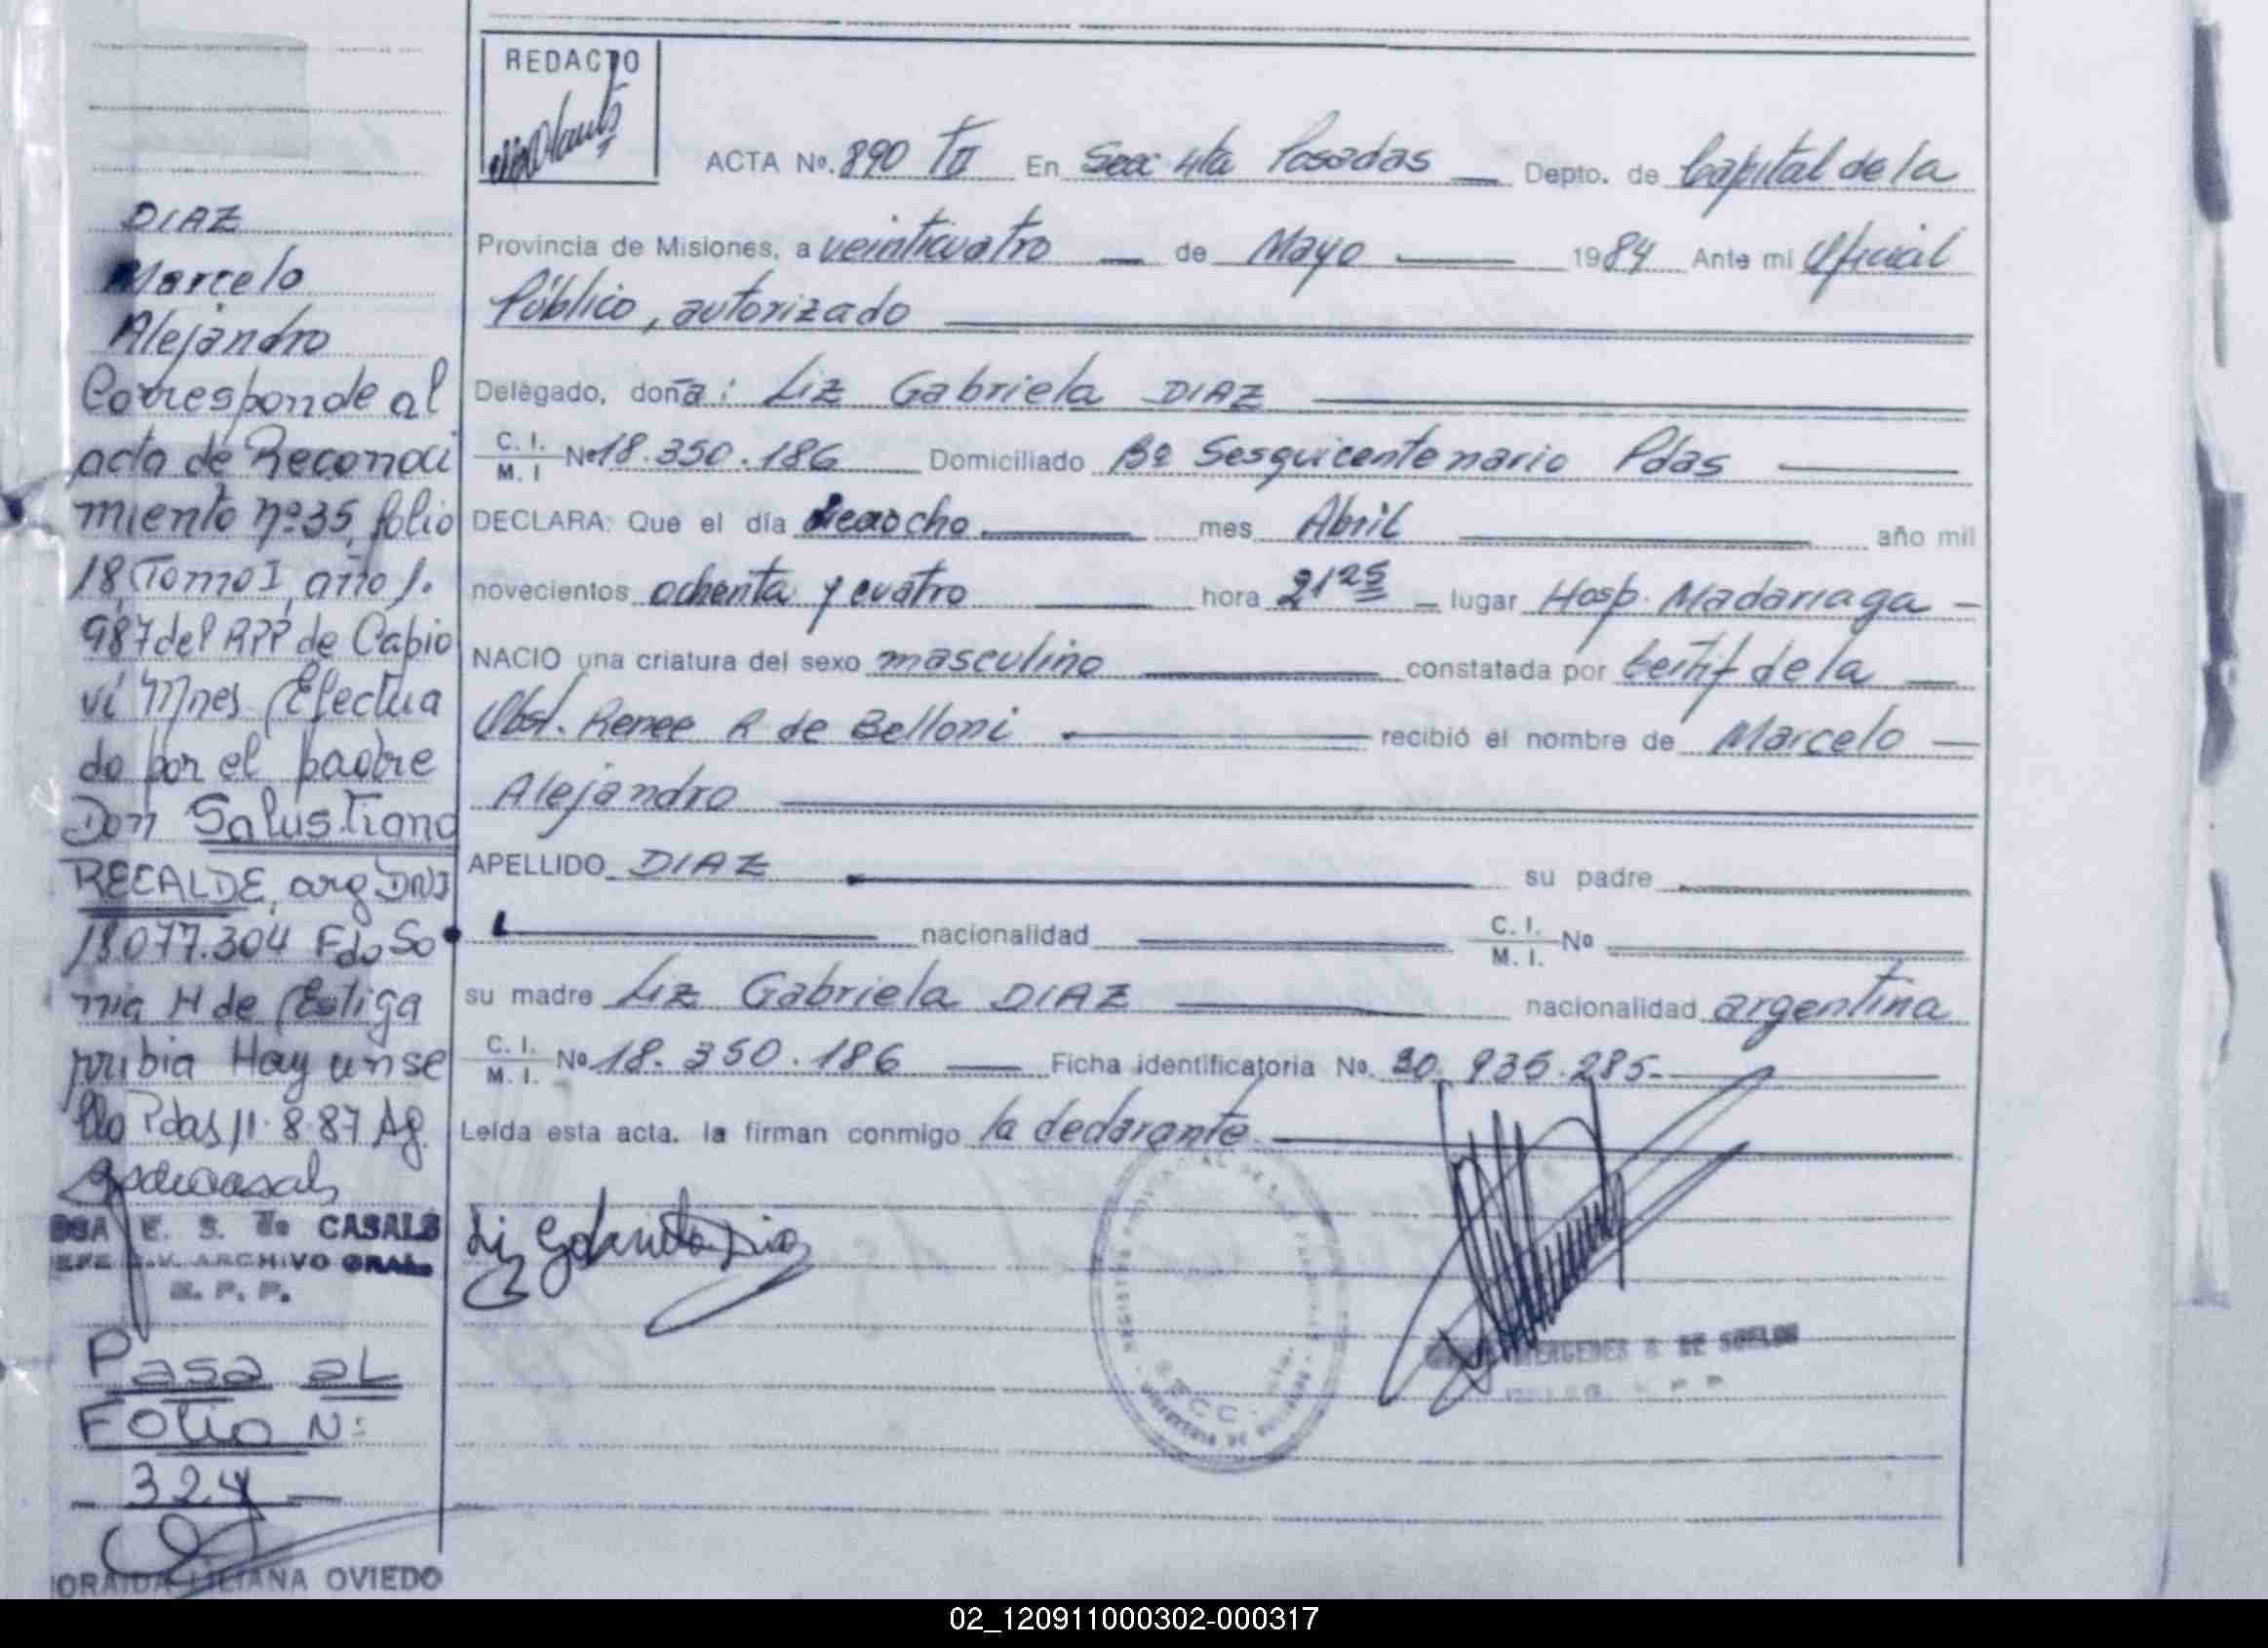 DIAZ
Marcelo
Alejandro
Corresponde al
acta de Reconoci
miento nº35, folio
18, Tomo I, año 1.
987 del RPP de Capio
ví Mnes. Efectua
do por el padre
Don Salustiano
RECALDE, arg DNI
18.077.304 Fdo So
nia H de Estiga
rribia Hay un se
llo Pdas 11.8.87 Ag.
E. S. de CASALS
ARCHIVO GRAL.
R. P. P.
Pasa al
Folio N:
324
LILIANA OVIEDO
REDACTO
ACTA Nº. 890 TII En Secc 4ta Posadas Depto. de Capital de la
Provincia de Misiones, a veinticuatro de Mayo 1984 Ante mi Oficial
Público, autorizado
Delegado, doña: Liz Gabriela DIAZ
C. I. / M. I Nº 18.350.186 Domiciliado Bº Sesquicentenario Pdas
DECLARA: Que el día dieciocho mes Abril año mil
novecientos ochenta y cuatro hora 21 25 lugar Hosp. Madariaga
NACIO una criatura del sexo masculino constatada por certif de la
Obst. Renee R de Belloni recibió el nombre de Marcelo
Alejandro
APELLIDO DIAZ su padre
nacionalidad C. I. / M. I. Nº
su madre Liz Gabriela DIAZ nacionalidad argentina
C. I. / M. I. Nº 18.350.186 Ficha identificatoria No. 30.936.285-
Leída esta acta. la firman conmigo la declarante
MERCEDES
02_120911000302-000317